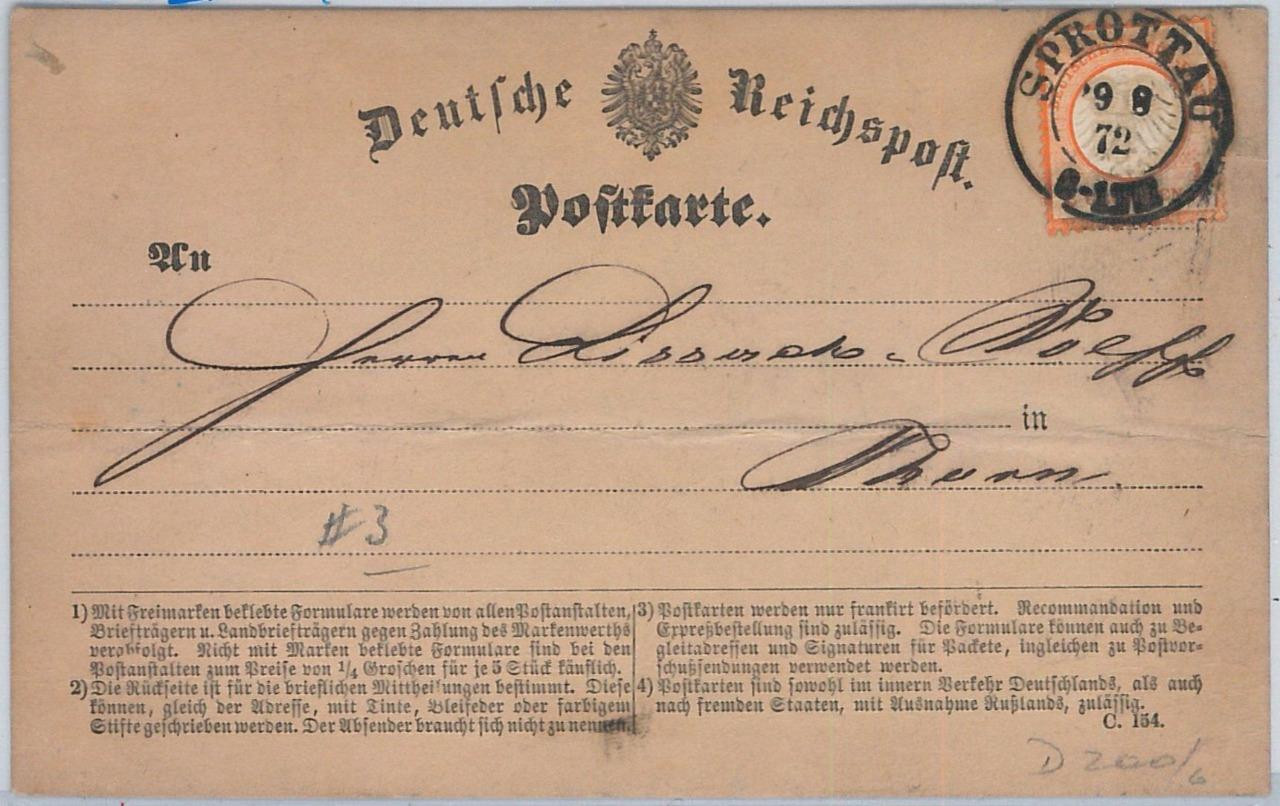 Deutsche Reichspost.
SPROTTAU
9 8
72
Postkarte.
An
Herren Lissack & Wolff
in
Thorn.
#3
1) Mit Freimarken beklebte Formulare werden von allen Postanstalten,
Briefträgern u. Landbriefträgern gegen Zahlung des Markenwerths
verabfolgt. Nicht mit Marken beklebte Formulare sind bei den
Postanstalten zum Preise von 1/4 Groschen für je 5 Stück käuflich.
2) Die Rückseite ist für die brieflichen Mittheilungen bestimmt. Diese
können, gleich der Adresse, mit Tinte, Bleifeder oder farbigem
Stifte geschrieben werden. Der Absender braucht sich nicht zu nennen.
3) Postkarten werden nur frankirt befördert. Recommandation und
Expreßbestellung sind zulässig. Die Formulare können auch zu Be-
gleitadressen und Signaturen für Packete, ingleichen zu Postvor-
schußsendungen verwendet werden.
4) Postkarten sind sowohl im innern Verkehr Deutschlands, als auch
nach fremden Staaten, mit Ausnahme Rußlands, zulässig.
C. 154.